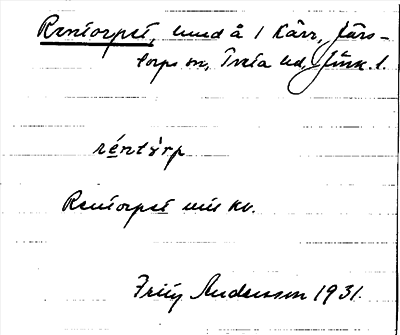 Rentorpet, lund å 1 Kärr, Järs-
torps sn, Tveta hd, Jönk. l.
réntòrp
Rentorpet vid kv.
Fritz Andersson 1931.